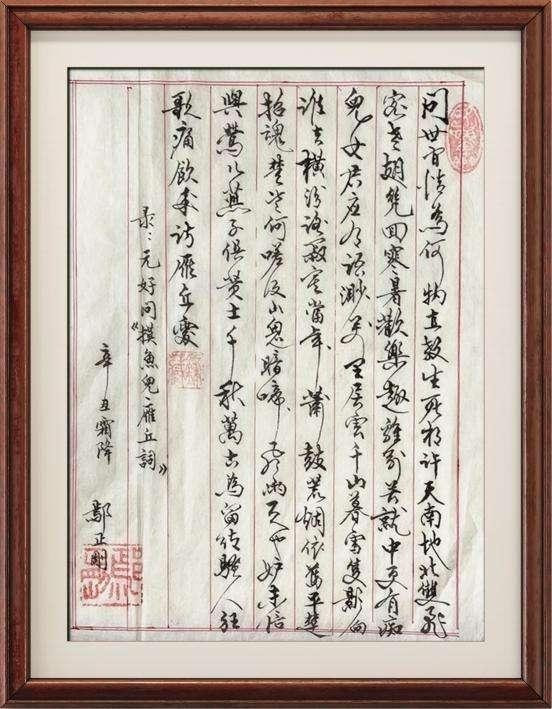 问世间情為何物直教生死相许天南地北雙飛
客老翅几回寒暑歡樂趣離别苦就中更有痴
兒女君应有语渺万里层雲千山暮雪隻影向
谁去横汾路寂寞當年箫鼓荒烟依舊平楚
招魂楚些何嗟及山鬼暗啼风雨天也妒未信
與莺儿燕子俱黄土千秋萬古為留待騷人狂
歌痛飲来访雁丘處
录：元好问《摸魚兒雁丘詞》
辛丑霜降
鄢正剛